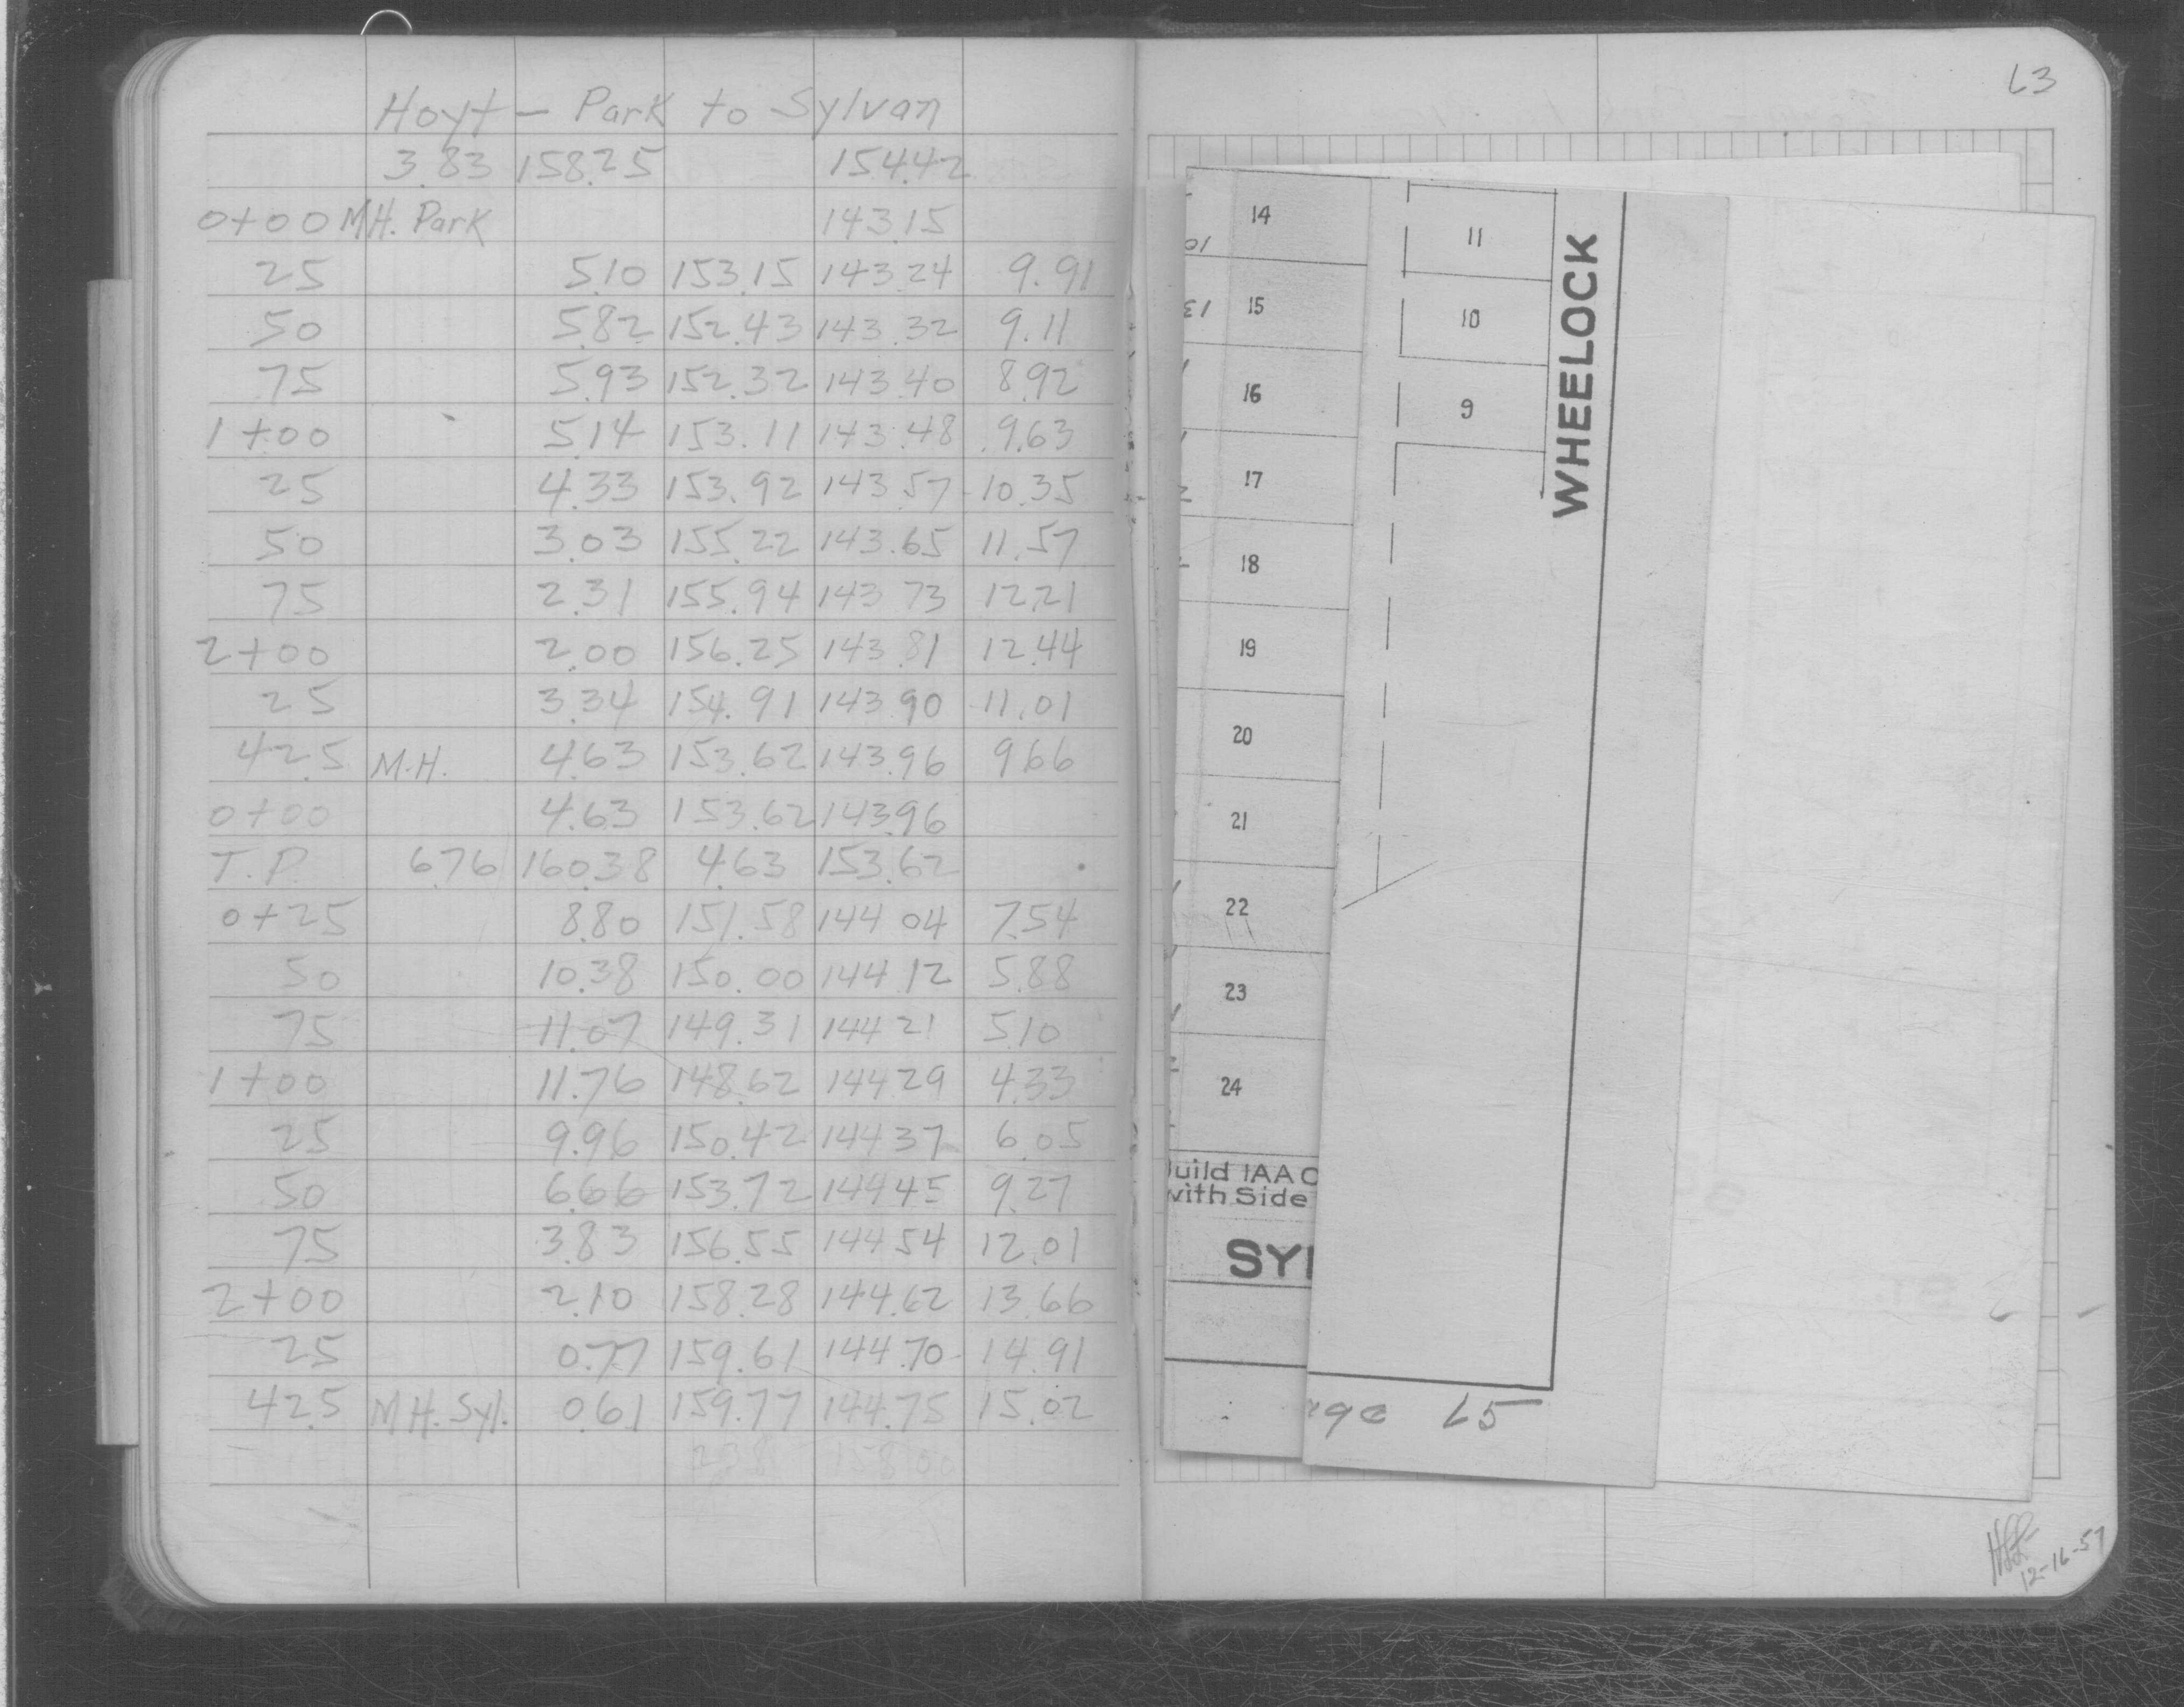 Hoyt - Park to Sylvan
3.83 158.25 154.42
0+00 M.H. Park 143.15
25 5.10 153.15 143.24 9.91
50 5.82 152.43 143.32 9.11
75 5.93 152.32 143.40 8.92
1+00 5.14 153.11 143.48 9.63
25 4.33 153.92 143.57 10.35
50 3.03 155.22 143.65 11.57
75 2.31 155.94 143.73 12.21
2+00 2.00 156.25 143.81 12.44
25 3.34 154.91 143.90 11.01
42.5 M.H. 4.63 153.62 143.96 9.66
0+00 4.63 153.62 143.96
T.P. 6.76 160.38 4.63 153.62
0+25 8.80 151.58 144.04 7.54
50 10.38 150.00 144.12 5.88
75 11.07 149.31 144.21 5.10
1+00 11.76 148.62 144.29 4.33
25 9.96 150.42 144.37 6.05
50 6.66 153.72 144.45 9.27
75 3.83 156.55 144.54 12.01
2+00 2.10 158.28 144.62 13.66
25 0.77 159.61 144.70 14.91
42.5 M.H. Syl. 0.61 159.77 144.75 15.02
2.38 158.00
63
14
15
16
17
18
19
20
21
22
23
24
uild 1AA C
with Side
SY
11
10
9
WHEELOCK
age 65
12-16-57